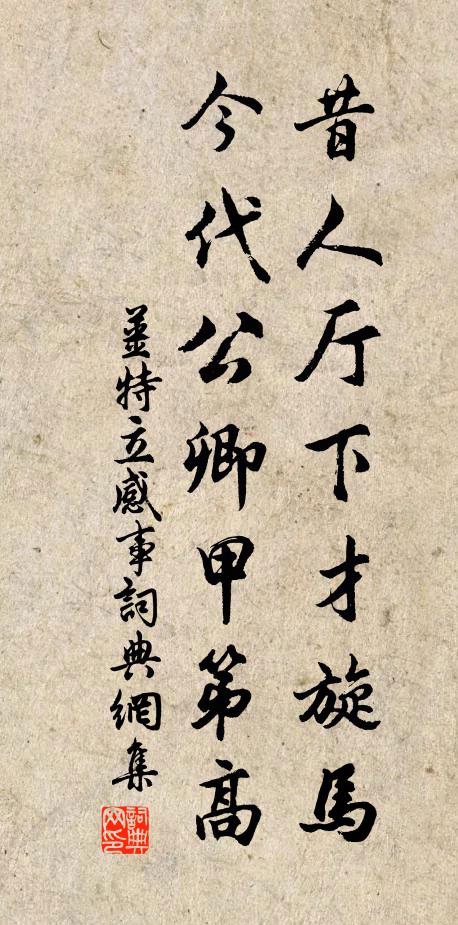 昔人厅下才旋馬
今代公卿甲第高
姜特立感事詞典網集
詞典网印